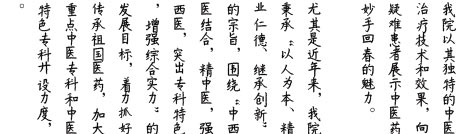 我院以其独特的中医
治疗技术和效果，向
疑难患者展示中医药
妙手回春的魅力。
尤其是近年来，我院
秉承“以人为本、精
业仁德、继承创新”
的宗旨，围绕“中西
医结合，精中医，强
西医，突出专科特色
，增强综合实力”的
发展目标，着力抓好
传承祖国医药，加大
重点中医专科和中医
特色专科开设力度，
。